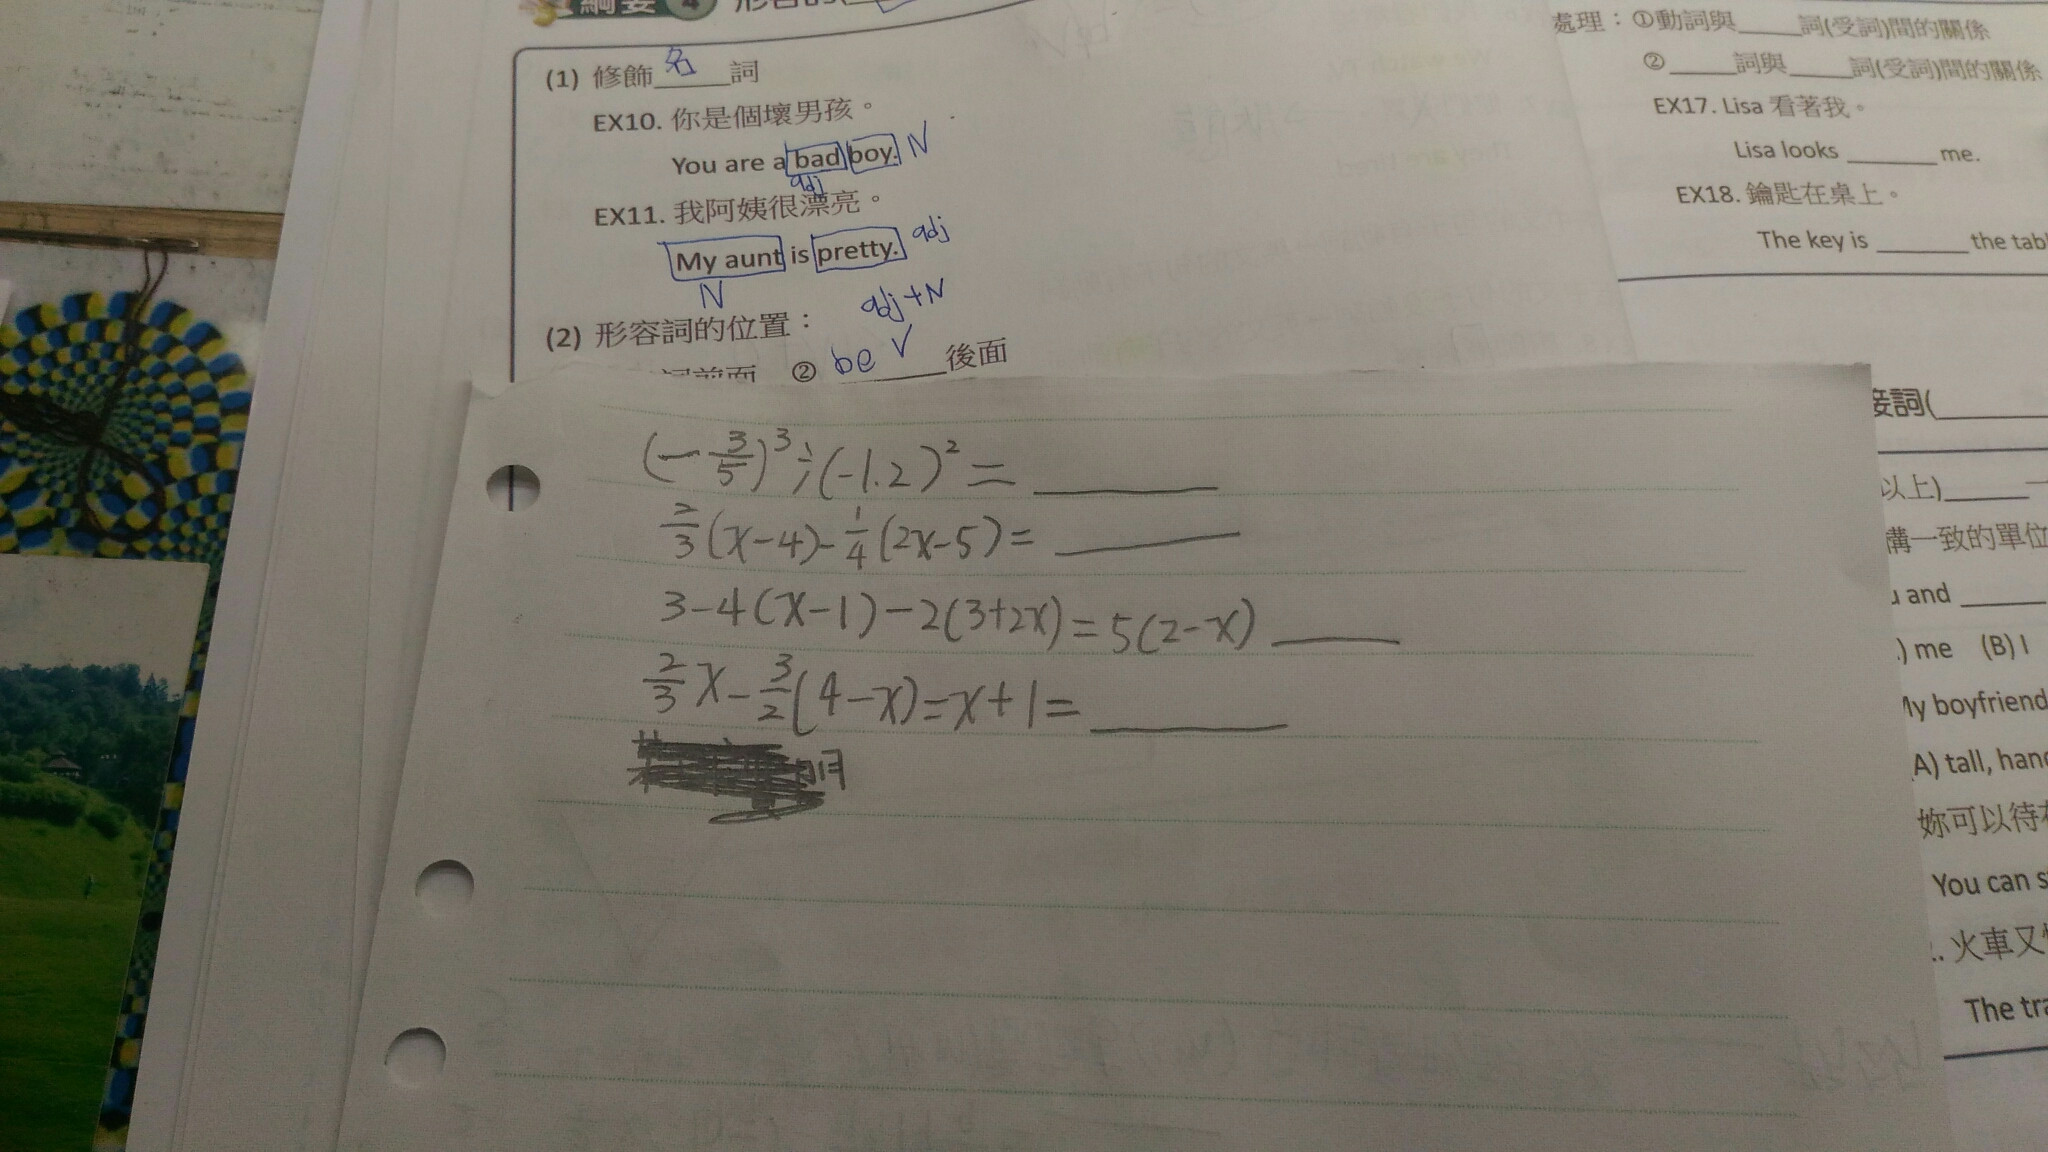 綱要 4
(1) 修飾名詞
EX10. 你是個壞男孩。
You are a bad boy. N
adj
EX11. 我阿姨很漂亮。
My aunt is pretty. adj
N
adj+N
(2) 形容詞的位置:
詞前面 ② be V 後面
處理:①動詞與____詞(受詞)間的關係
②____詞與____詞(受詞)間的關係
EX17. Lisa 看著我。
Lisa looks ____ me.
EX18. 鑰匙在桌上。
The key is ____ the
接詞(
以上)____
構一致的單位
and ____
me (B) I
boyfriend
(A) tall,
妳可以待
You can
火車又
The
(-3/5)³÷(-1.2)²=____
2/3(x-4)-1/4(2x-5)=____
3-4(x-1)-2(3+2x)=5(2-x)____
2/3x-3/2(4-x)=x+1=____